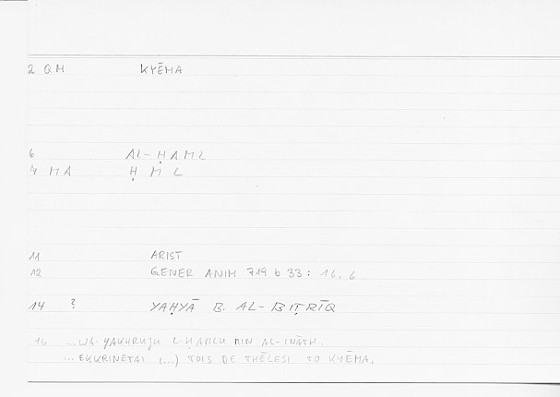 2 QM KYĒMA
6 AL-ḤAML
4 MA ḤML
11 ARIST
12 GENER ANIM 719 b 33: 16, 6
14 ? YAḤYĀ B. AL-BIṬRĪQ
16 ... WA-YAKHRUJU L-ḤAMLU MIN AL-INĀTH.
... EKKRINETAI (...) TOIS DE THĒLESI TO KYĒMA.